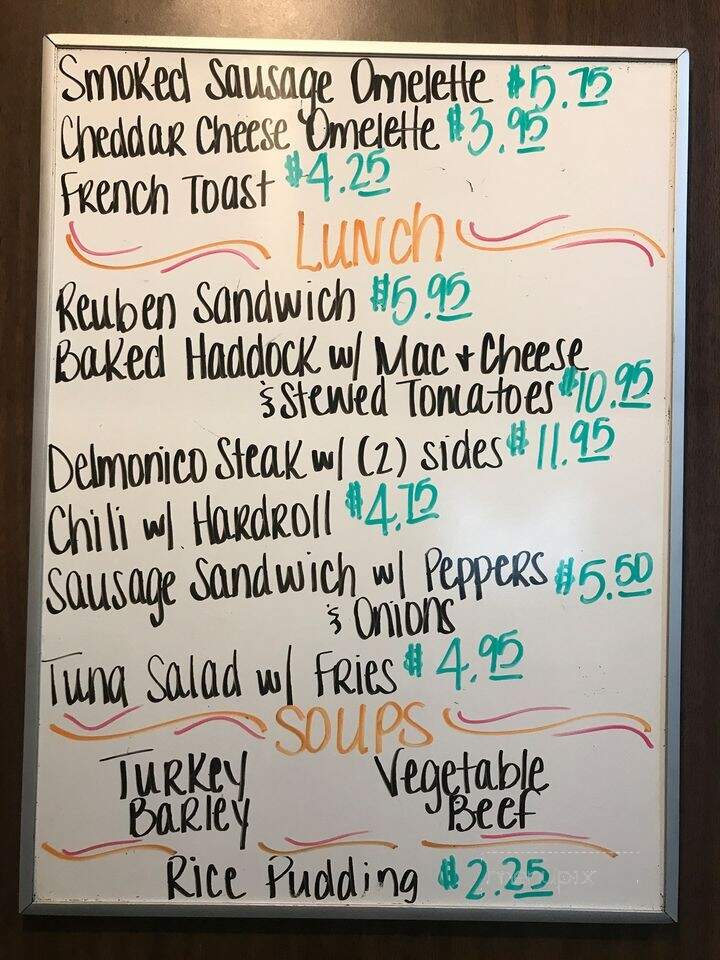 Smoked Sausage Omelette $5.75
Cheddar Cheese Omelette $3.95
French Toast $4.25
Lunch
Reuben Sandwich $5.95
Baked Haddock w/ Mac + Cheese
& Stewed Tomatoes $10.95
Delmonico Steak w/ (2) sides $11.95
Chili w/ Hardroll $4.75
Sausage Sandwich w/ Peppers $5.50
& Onions
Tuna Salad w/ Fries $4.95
Soups
Turkey Vegetable
Barley Beef
Rice Pudding $2.25